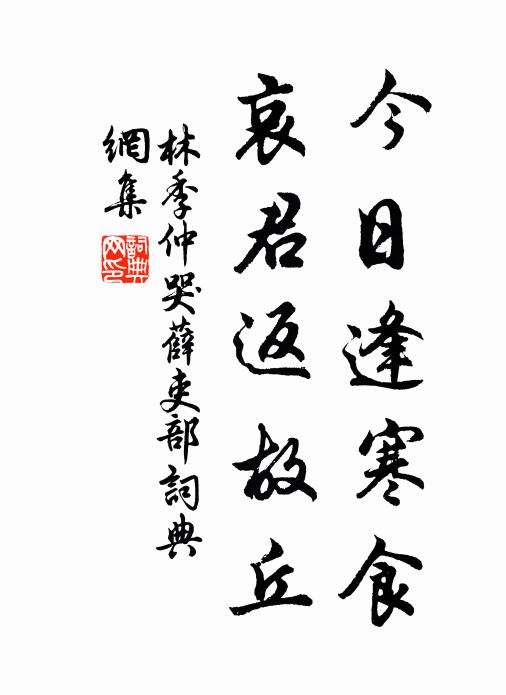 今日逢寒食
哀君返故丘
林季仲哭薛吏部詞典
網集
詞典
网印